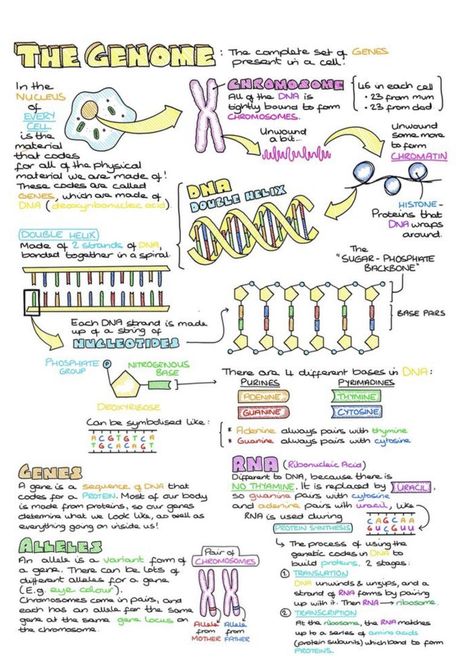 THE GENOME : The complete set of GENES
present in a cell!
In the
NUCLEUS
of
EVERY
CELL,
is the
material
that codes
for all of the physical
material we are made of!
These codes are called
GENES, which are made of
DNA (deoxyribonucleic acid).
CHROMOSOME
All of the DNA is
tightly bound to form
CHROMOSOMES.
46 in each cell
• 23 from mum
• 23 from dad
Unwound
a bit...
Unwound
some more
to form
CHROMATIN
HISTONE -
Proteins that
DNA wraps
around.
DNA
DOUBLE HELIX
DOUBLE HELIX
Made of 2 strands of DNA,
bonded together in a spiral.
The
"SUGAR - PHOSPHATE
BACKBONE"
BASE PAIRS
Each DNA strand is made
up of a string of
NUCLEOTIDES
PHOSPHATE
GROUP
P
NITROGENOUS
BASE
DEOXYRIBOSE
Can be symbolised like:
There are 4 different bases in DNA:
PURINES
PYRIMADINES
ADENINE
THYMINE
GUANINE
CYTOSINE
* Adenine always pairs with thymine
* Guanine always pairs with cytosine
GENES
A gene is a sequence of DNA that
codes for a PROTEIN. Most of our body
is made from proteins, so our genes
determine what we look like, as well as
everything going on inside us!
ALLELES
An allele is a variant form of
a gene. There can be lots of
different alleles for a gene
(E.g. eye colour).
Chromosomes come in pairs, and
each has an allele for the same
gene at the same gene locus on
the chromosome.
Pair of
CHROMOSOMES
Allele
from
MOTHER
Allele
from
FATHER
RNA (Ribonucleic Acid)
Different to DNA, because there is
NO THYAMINE. It is replaced by URACIL,
so guanine pairs with cytosine
and adenine pairs with uracil, like
RNA is used during
PROTEIN SYNTHESIS
↳ The process of using the
genetic codes in DNA to
build proteins, 2 stages:
① TRANSLATION
DNA unwinds & unzips, and a
strand of RNA forms by pairing
up with it. Then RNA → ribosome.
② TRANSCRIPTION
At the ribosome, the RNA matches
up to a series of amino acids
(protein subunits) which bond to form
PROTEINS.